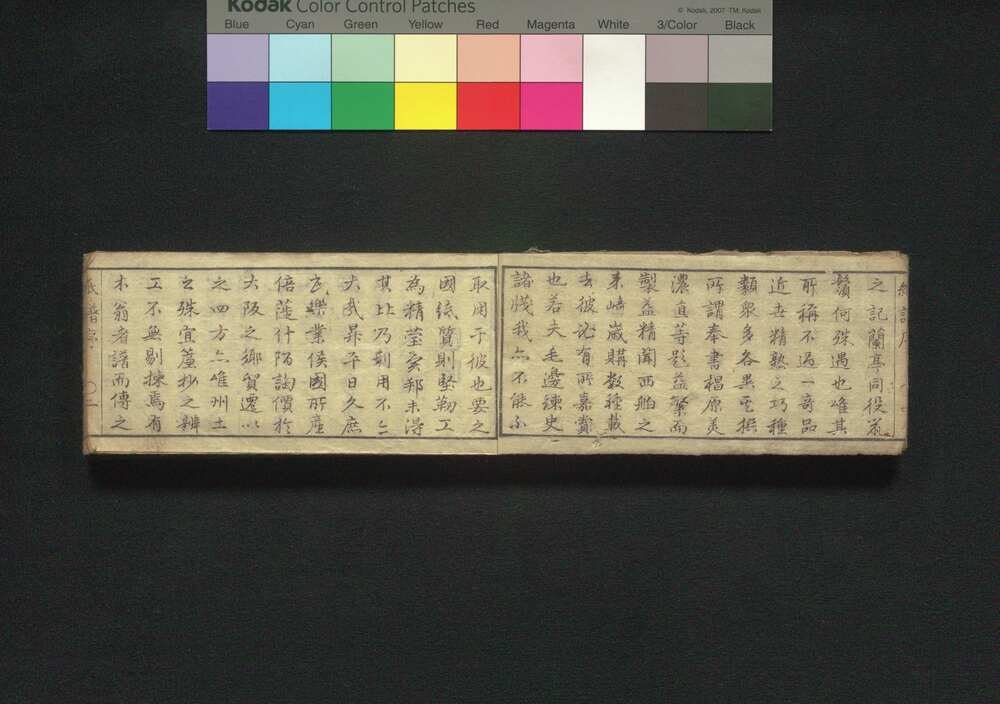 Kodak Color Control Patches
© Kodak, 2007 TM: Kodak
Blue Cyan Green Yellow Red Magenta White 3/Color Black
之記蘭亭同役於
鬚何殊遇也唯其
所稱不過一奇品
近世精熟之巧種
類衆多各異其撰
所謂奉書椙原美
濃直等彩益繁而
製益精聞西舶之
来崎歲購数種載
去彼地有所嘉賞
也若夫毛邊練史
諸牋我亦不能不
取用于彼也要之
國紙質則堅靭工
為精瑩蛮邦未得
其比乃剞用不亡
大哉昇平日久庶
民樂業侯國所產
倍蓰什陌詢價於
大阪之鄉貿遷以
之四方亦唯州土
之殊宜蘆抄之辨
工不無剔揀焉有
木翁者譜而傳之